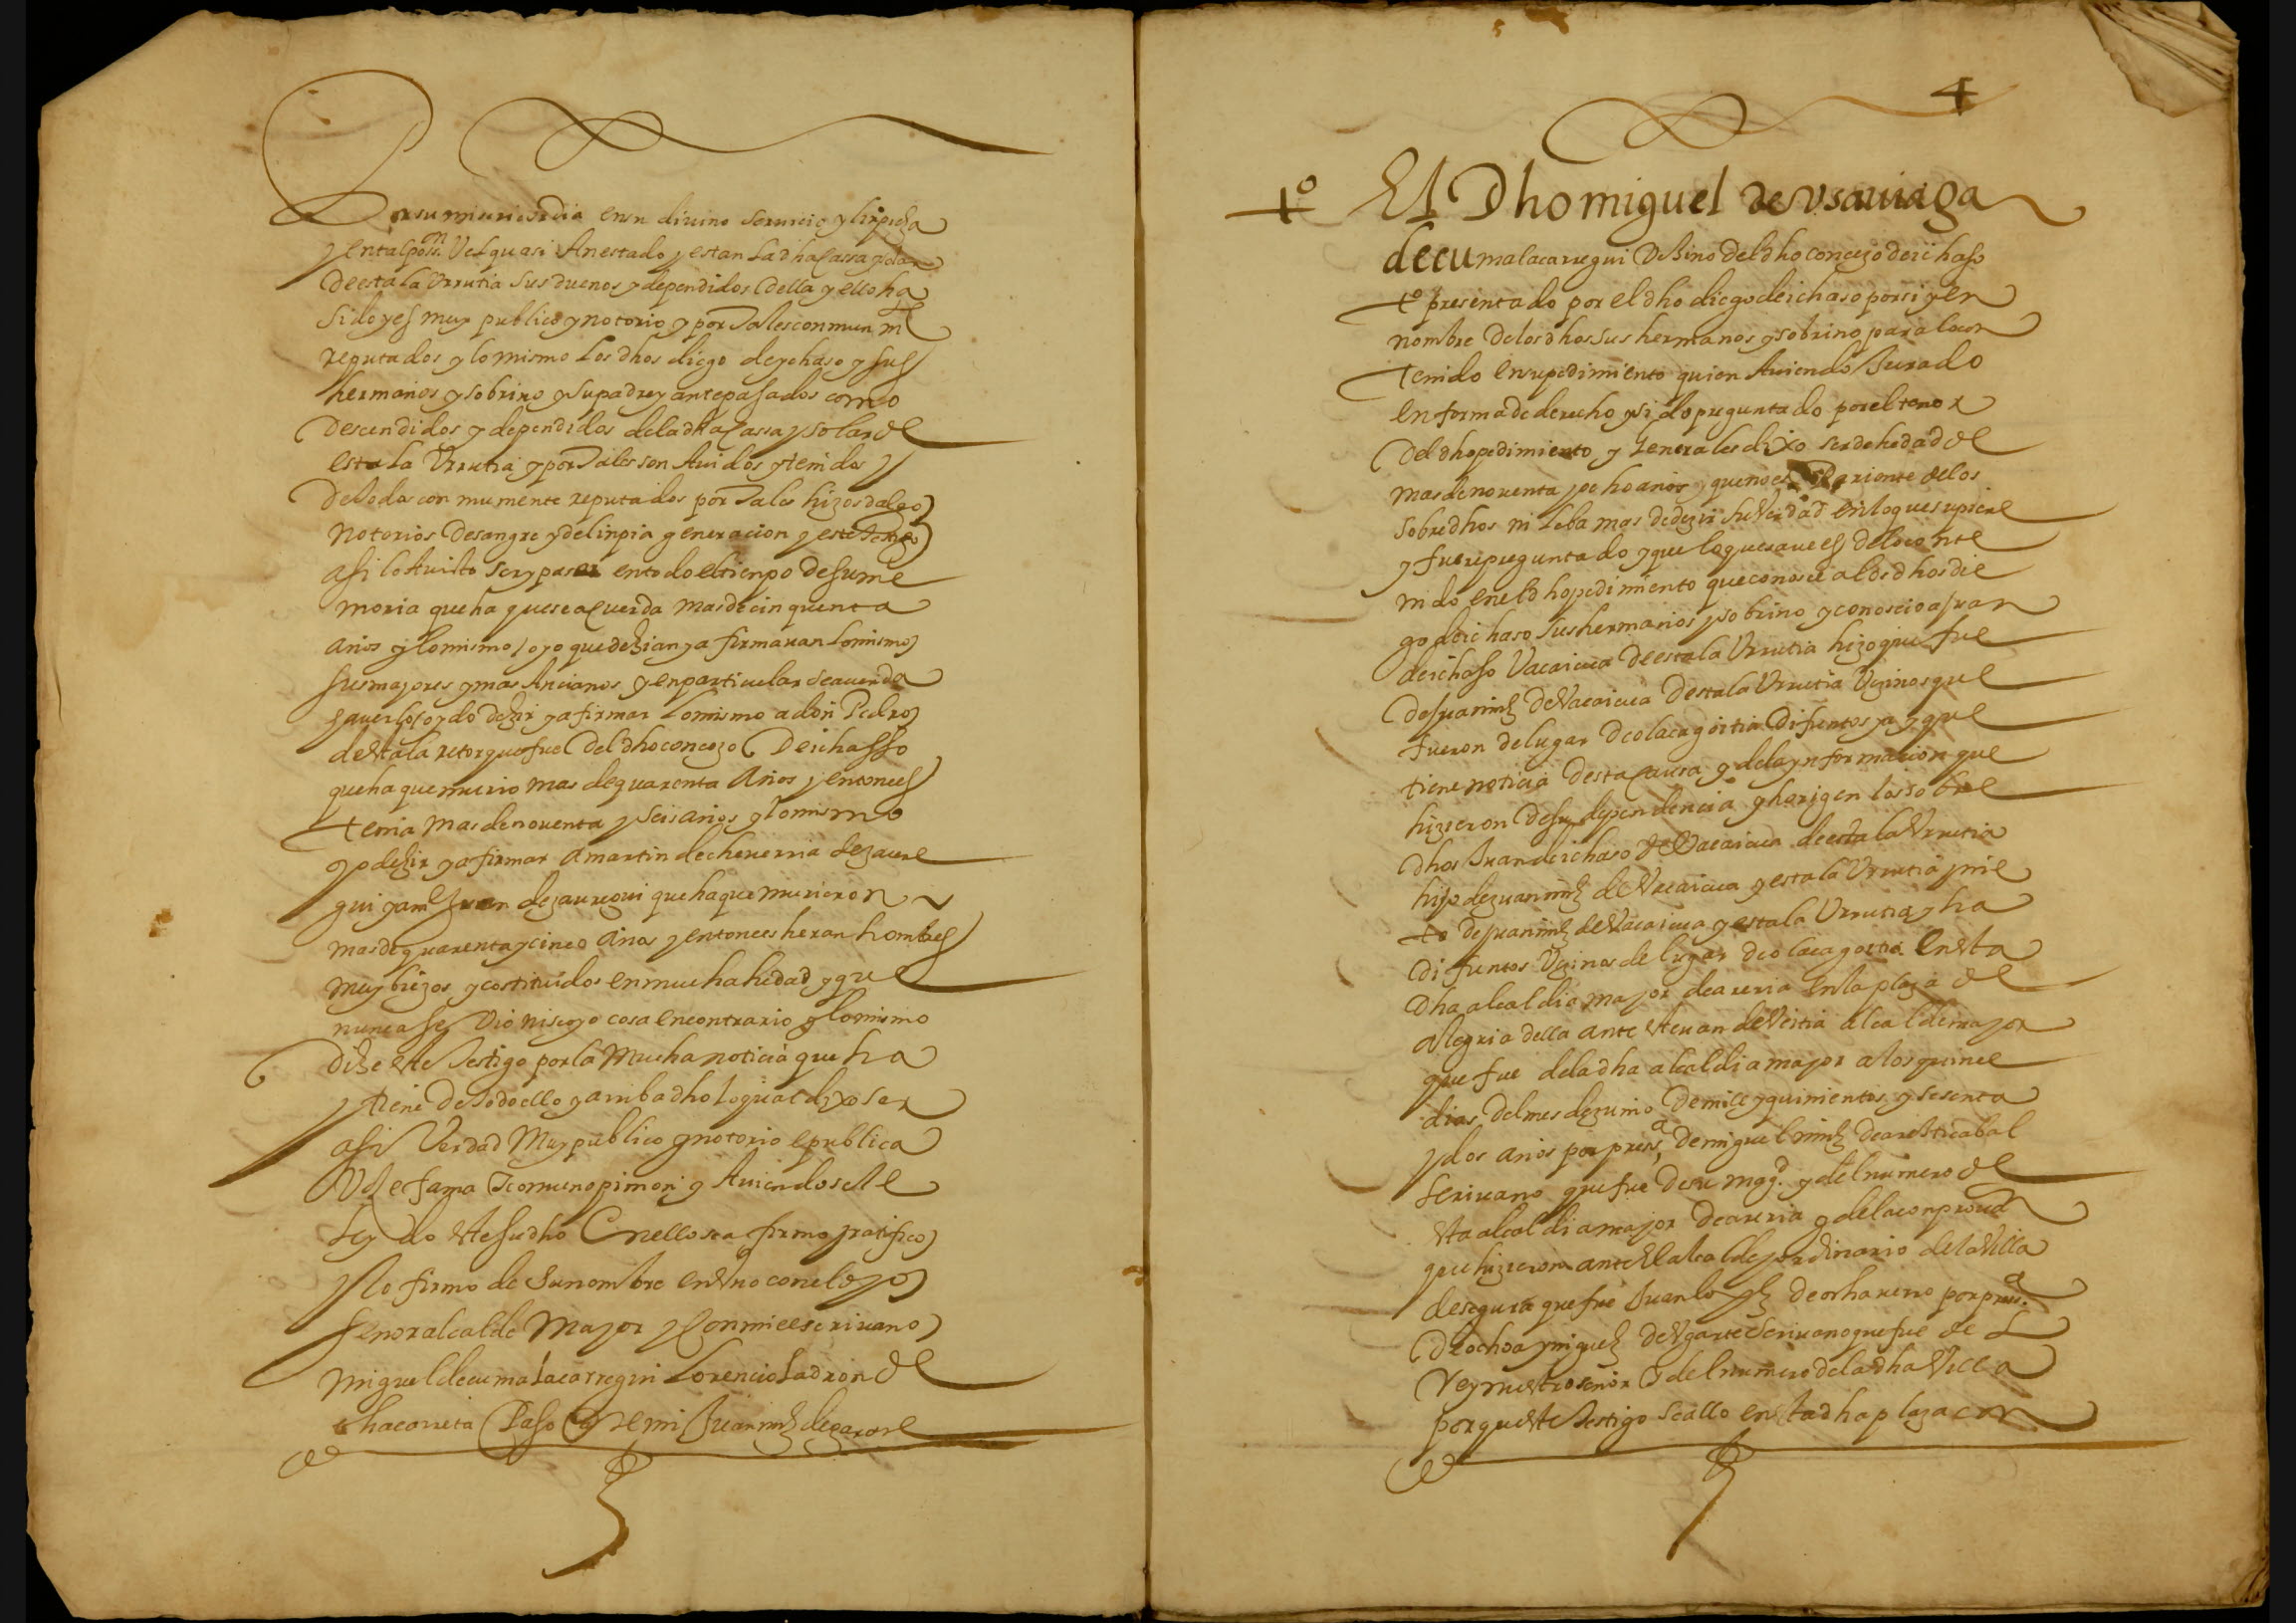 por su misericordia en su divino seruicio y linpieza
y en tal poss.on vel quasi An estado y estan la dha cassa y solar
de estala Vrrutia sus duenos y dependidos della y ello ha
sido y es muy publico y notorio y por tales comun mte
reputados y lo mismo los dhos diego de ychaso y sus
hermanos y sobrino y su padre y antepasados como
Descendidos y dependidos de la dha cassa y solar de
estala Vrrutia y por tales son Auidos y tenidos y
de todos con mumente reputados por tales hijosdalgo
notorios de sangre y de linpia generacion y este testigo
asi lo A uisto ser y pasar en todo el tienpo de su me
moria que ha que se aquerda mas de cinquenta
años y lo mismo oyo que dezian y afirmauan lo mismo
sus mayores y mas Ancianos y en particular se acuerda
hauerlo oydo dezir y afirmar lo mismo a don Pedro
de estala retor que fue del dho concejo de ichasso
que ha que murio mas de quarenta Años y entonces
tenia mas de nouenta y seis años y lo mismo
oyo dezir y afirmar a martin de cheuerria de jaure
gui y a Juan de jauregui que ha que murieron
mas de quarenta y cinco años y entonces heran hombres
muy biejos y costituidos en mucha hedad y que
nunca se vio ni se oyo cosa en contrario y lo mismo
dize este testigo por la mucha noticia que ha
y tiene de todo ello y arriba dho lo qual dixo ser
asi Verdad Muy publico y notorio e publica
voz e fama e comun opinion y Auiendosele
leydo este su dho en ello se afirmo y ratifico
y lo firmo de su nombre en vno con el dho
señor alcalde Mayor y con mi el escriuano
miguel de cumalacarregui Lorencio Ladron de
chacorreta Paso ante mi Juan mnz de
4
to El Dho miguel de vsauiaga
de cumalacarregui Vezino del dho concejo de ichaso
to presentado por el dho diego de ichaso por si y en
nombre de los dhos sus hermanos y sobrino para lo con
tenido en su pedimiento quien Auiendo Jurado
en forma de derecho y sido preguntado por el tenor
del dho pedimiento y Generales dixo ser de hedad de
mas de nouenta y ocho años y que no es pariente de los
sobredhos ni deba mas de dezir su Verdad en lo que supiere
y fuere preguntado y que lo que saue es de lo conte
nido en el dho pedimiento que conoce a los dhos die
go de ichaso sus hermanos y sobrino y conoscio a juan
de ichaso Vacaicua de estala Vrrutia hijo que fue
de juan mnz de Vacaicua de estala Vrrutia Vezinos que
fueron del lugar de olacagortia Difuntos ya y que
tiene noticia desta causa y de la ynformacion que
hizieron de su dependencia y horigen los sobre
dhos Juan de ichaso de Vacaicua de estala Vrrutia
hijo de juan mnz de Vacaicua y estala Vrrutia y nie
to de juan mnz de Vacaicua y estala Vrrutia y ha
difuntos Vezinos del lugar de olacagortia en esta
Dha alcaldia mayor de areria en la plaza de
alegria della ante esteuan de Veitia alcalde mayor
que fue de la dha alcaldia mayor a los quince
dias del mes de junio de mill y quinientos y sesenta
y dos años por presa de miguel mnz de aresticabal
scriuano que fue de su magd. y del numero de
esta alcaldia mayor de areria y de la conprouon
que hizieron ante el alcalde hordinario de la Villa
de segura que fue Juan lopz de orharerro por presa
de ochoa miguelz de Vgarte Scriuano que fue de L
Rey nuestro señor y del numero de la dha Villa
porque este testigo se allo en esta dha plaza con